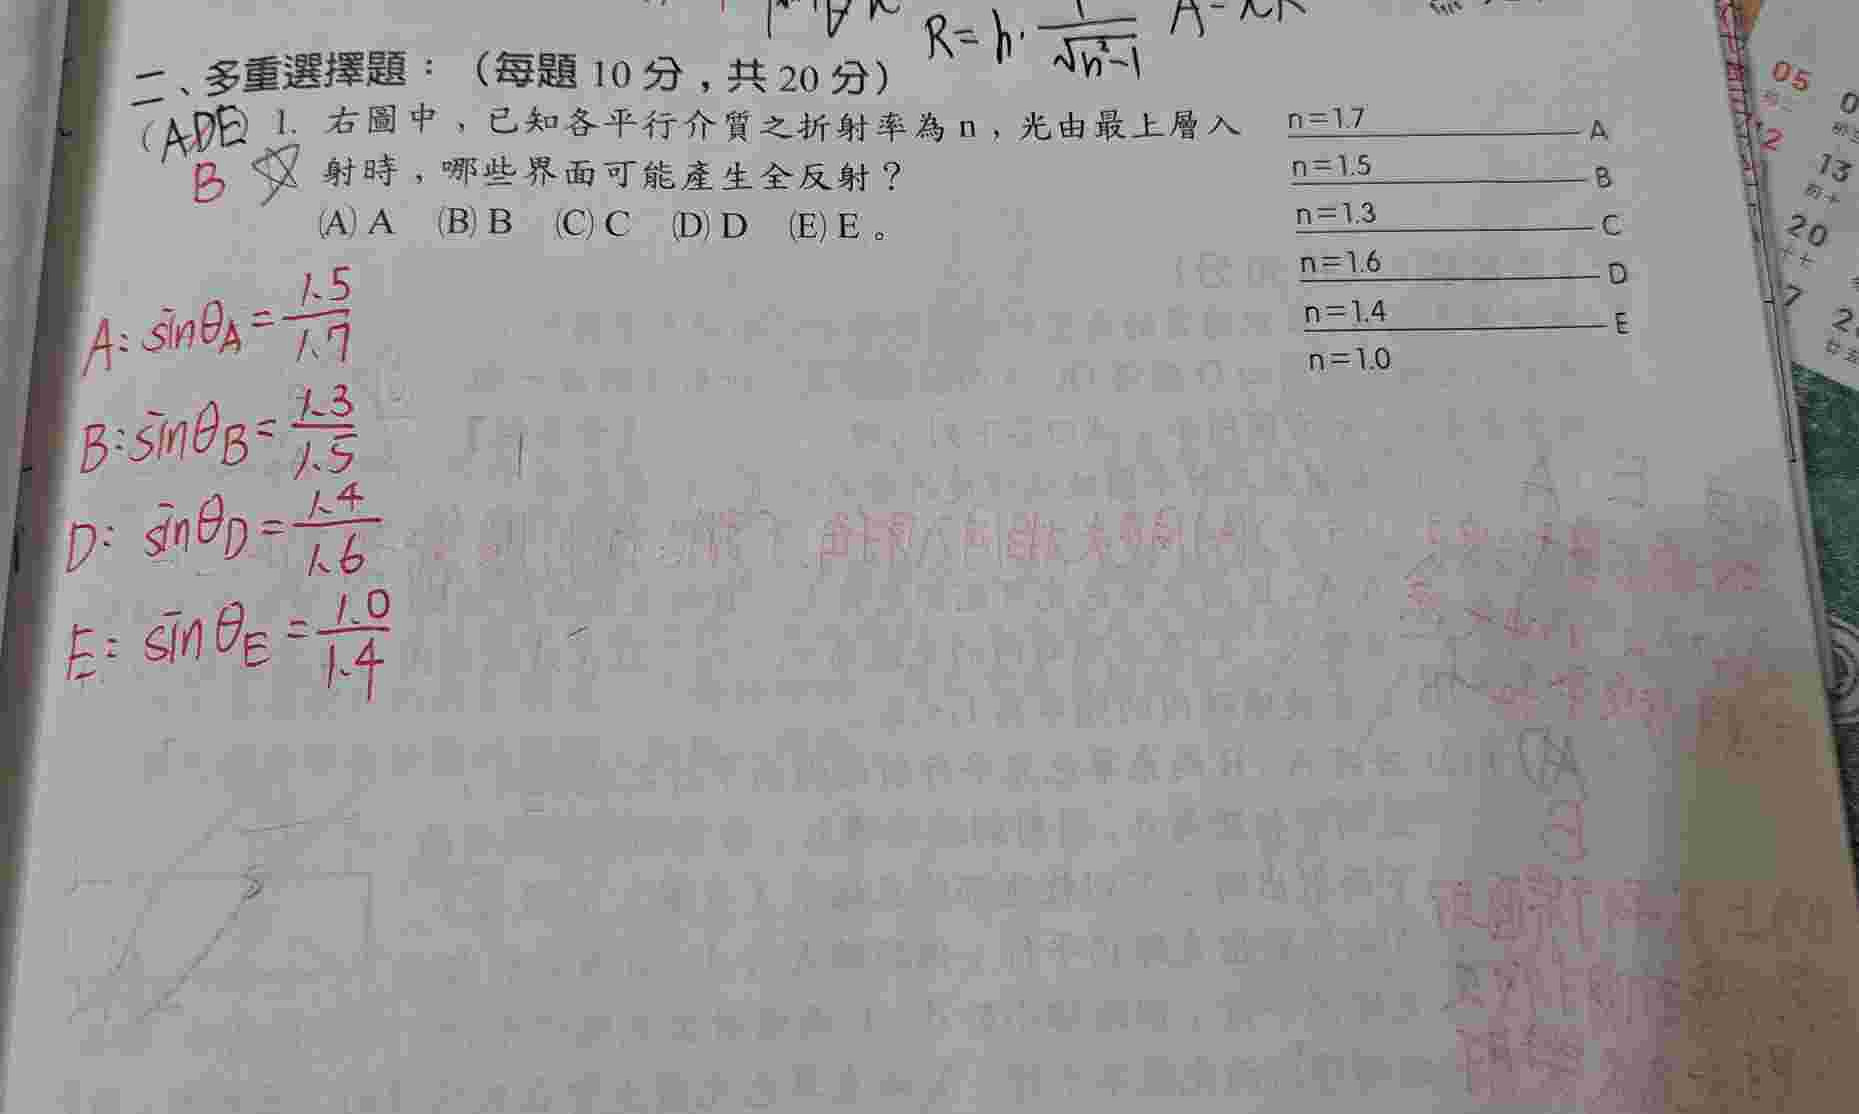 R=h·1/√(n²-1)
二、多重選擇題：（每題 10 分，共 20 分）
（ADE）1. 右圖中，已知各平行介質之折射率為 n，光由最上層入
B ☆ 射時，哪些界面可能產生全反射？
(A) A (B) B (C) C (D) D (E) E。
n=1.7 A
n=1.5 B
n=1.3 C
n=1.6 D
n=1.4 E
n=1.0
A: sinθA = 1.5/1.7
B: sinθB = 1.3/1.5
D: sinθD = 1.4/1.6
E: sinθE = 1.0/1.4
05
12
13
20